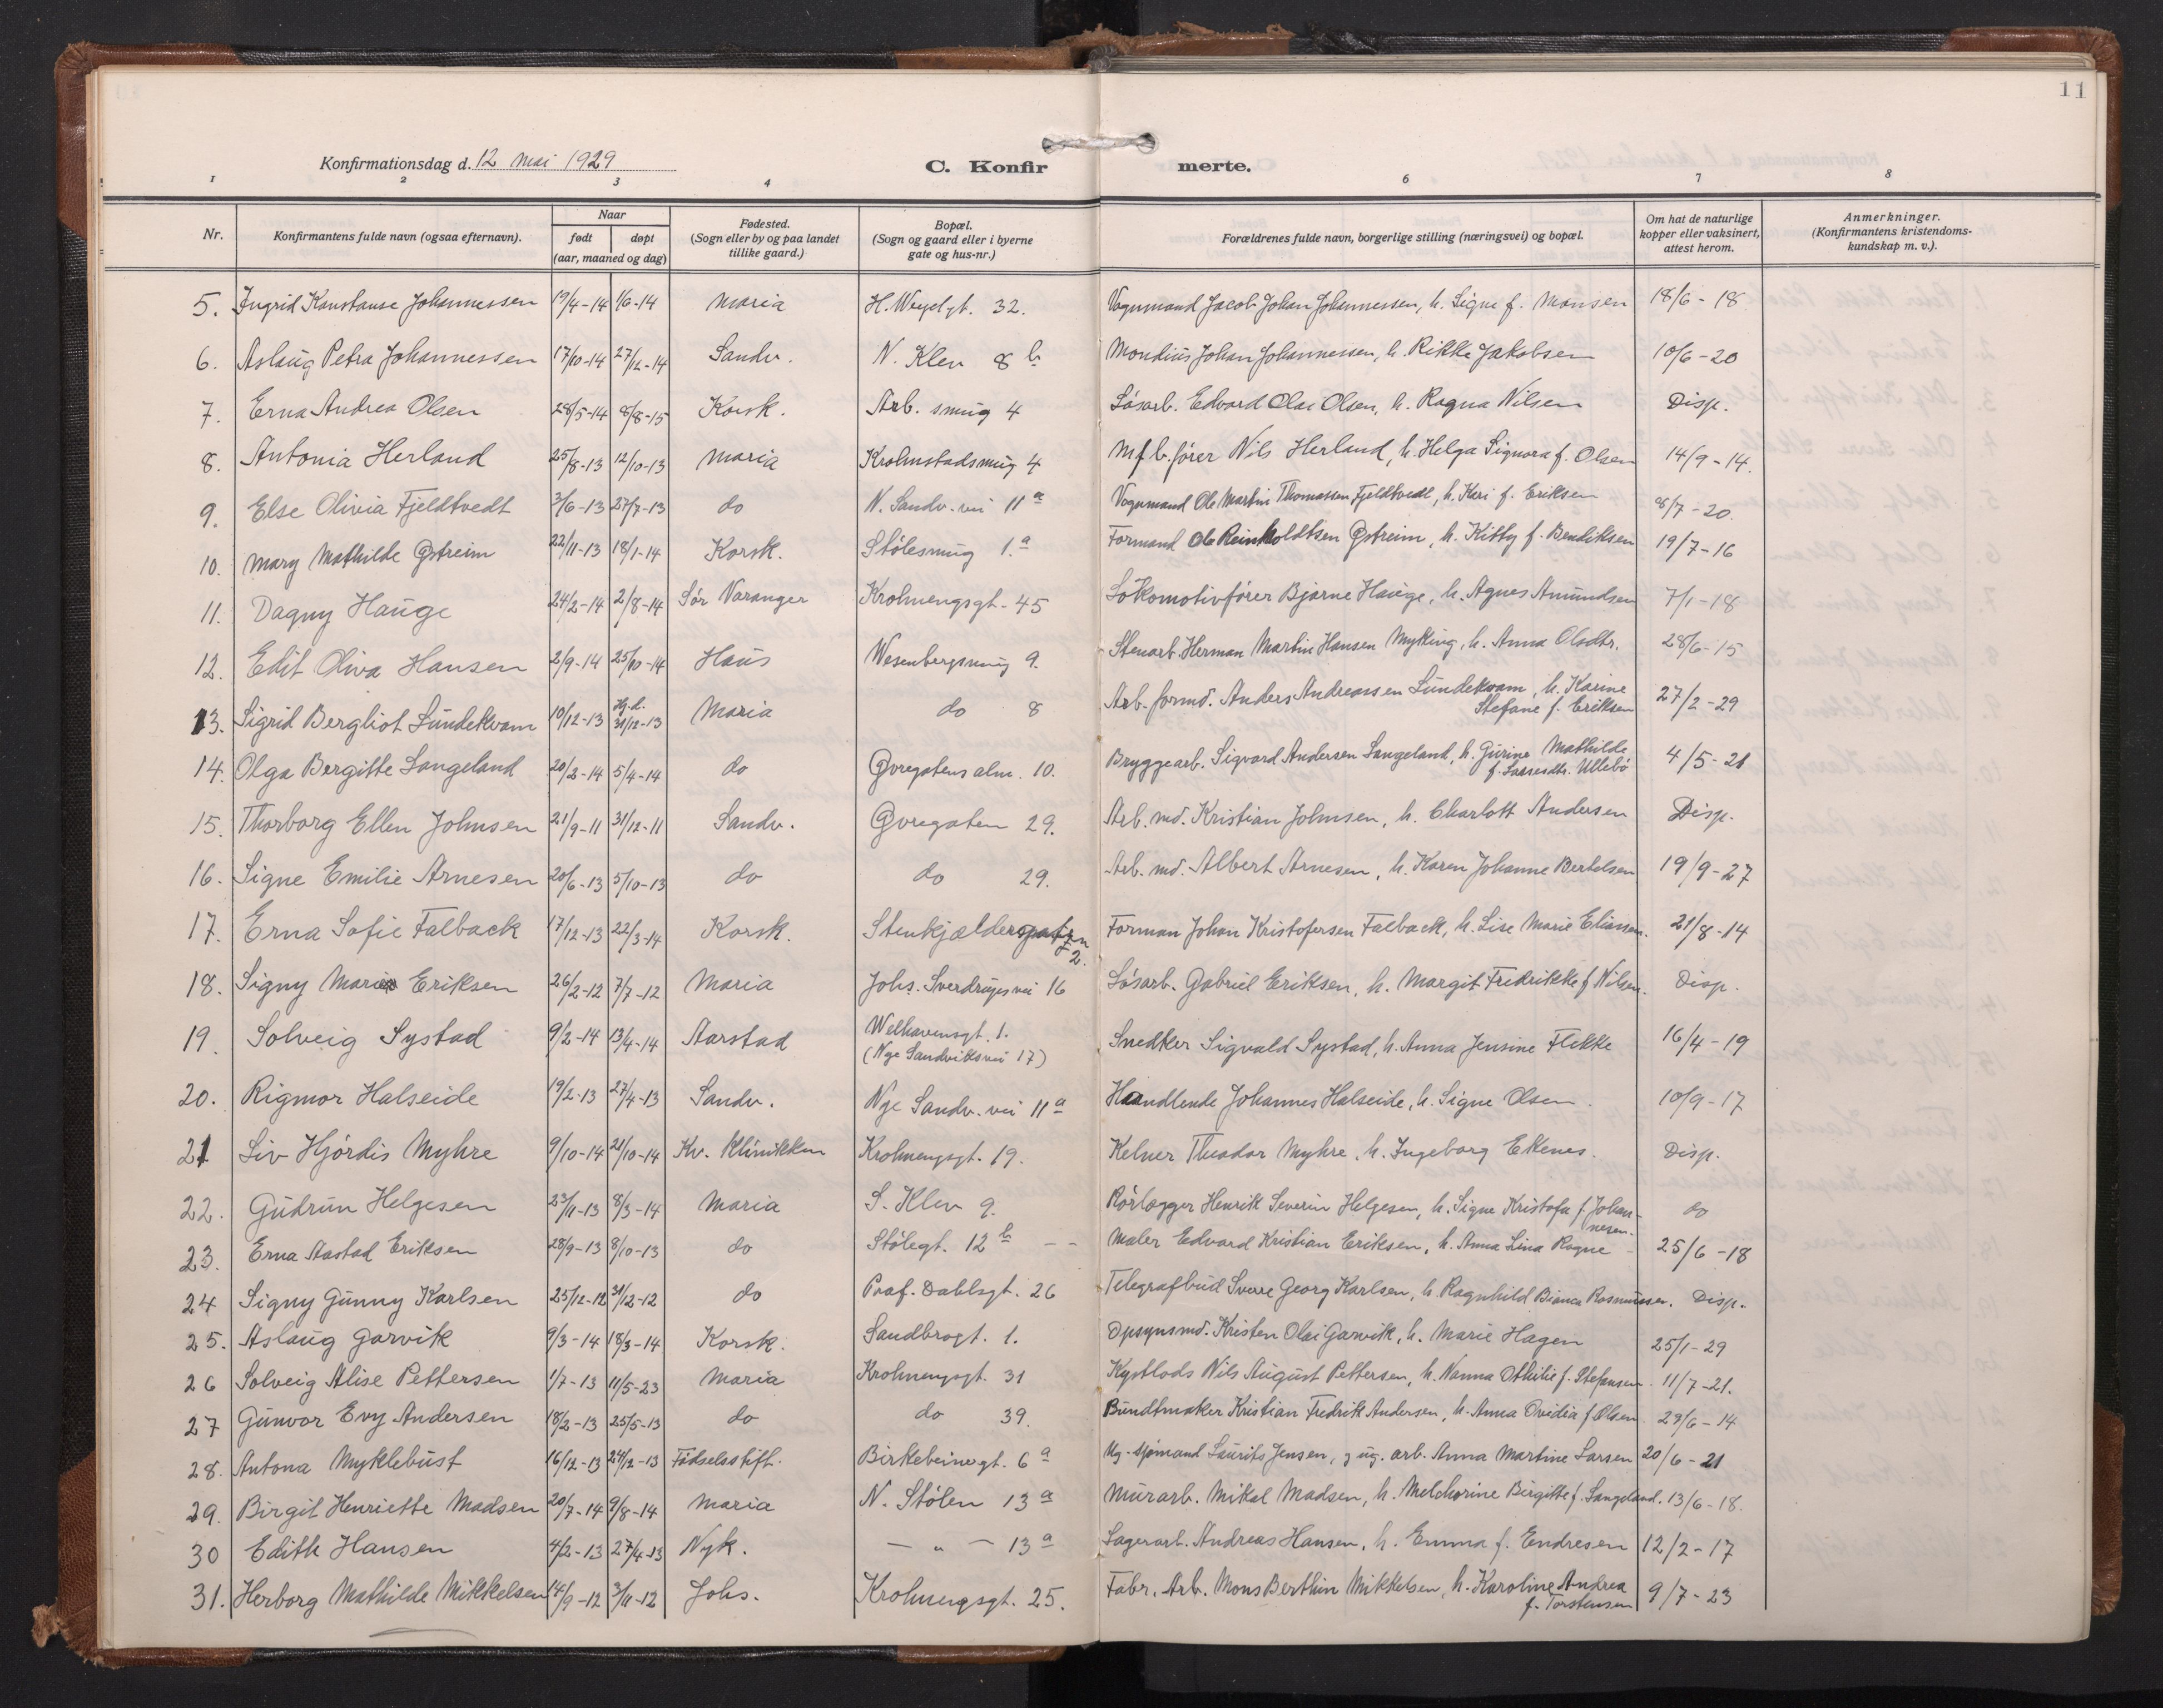 11
Konfirmationsdag d. 12 mai 1929
C. Konfirmerte.
1 2 3 4 6 7 8
Nr. | Konfirmantens fulde navn (ogsaa efternavn). | Naar født døpt (aar, maaned og dag) | Fødested. (Sogn eller by og paa landet tillike gaard.) | Bopæl. (Sogn og gaard eller i byerne gate og hus-nr.) | Forældrenes fulde navn, borgerlige stilling (næringsvei) og bopæl. | Om hat de naturlige kopper eller vaksinert, attest herom. | Anmerkninger. (Konfirmantens kristendomskundskap m. v.).
5. Ingrid Konstanse Johannessen 19/4-14 1/6-14 Maria H. Weydgt. 32. Vognmand Jacob Johan Johannessen, h. Signe f. Monsen 18/6-18
6. Aslaug Petra Johannessen 17/10-14 27/12-14 Sandv. N. Klev 8 b Mondius Johan Johannessen, h. Rikke Jakobsen 10/6-20
7. Erna Andrea Olsen 28/5-14 8/8-15 Korsk. Arb. smug 4 Løsarb. Edvard Olai Olsen, h. Ragna Nilsen Disp.
8. Antonia Herland 25/8-13 12/10-13 Maria Krohnstadsmug 4 M f b. fører Nils Herland, h. Helga Signora f. Olsen 14/9-14.
9. Else Olivia Fjeldtvedt 3/6-13 27/7-13 do N. Sandv. vei 11 a Vognmand Ole Martin Thomassen Fjeldtvedt, h. Kari f. Eriksen 8/7-20.
10. Mary Mathilde Østreim 22/11-13 18/1-14 Korsk. Stølesmug 1. a Formand Ole Reinholdtsen Østreim, h. Kitty f. Bendiksen 19/7-16
11. Dagny Hauge 24/2-14 2/8-14 Sør Varanger Krohnengsgt. 45 Lokomotivfører Bjarne Hauge, h. Agnes Amundsen 7/1-18
12. Edit Oliva Hansen 2/9-14 25/10-14 Haus Wesenbergsmug 9. Stenarb. Herman Martin Hansen Myking, h. Anna Olsdtr. 28/6-15
13. Sigrid Bergliot Lundekvam 10/12-13 Hj.d. 31/12-13 Maria do 8 Arb. formd. Anders Andreassen Lundekvam, h. Karine
Stefane f. Eriksen 27/2-29
14. Olga Bergitte Langeland 20/2-14 5/4-14 do Øvregatens alm. 10. Bryggearb. Sigvard Andersen Langeland, h. Gurine Mathilde
f. Larsesdtr. Ullebø 4/5-21
15. Thorborg Ellen Johnsen 21/9-11 31/12-11 Sandv. Øvregaten 29. Arb. md. Kristian Johnsen, h. Charlott Andersen Disp.
16. Signe Emilie Arnesen 20/6-13 5/10-13 do do 29. Arb. md. Albert Arnesen, h. Karen Johanne Bertelsen 19/9-27
17. Erna Sofie Falback 17/12-13 22/3-14 Korsk. Stenkjældergaten
2. Forman Johan Kristofersen Falback, h. Lise Marie Eliassen. 21/8-14
18. Signy Marie Eriksen 26/2-12 7/7-12 Maria Johs. Sverdrupsvei 16 Løsarb. Gabriel Eriksen, h. Margit Fredrikke f Nilsen. Disp.
19. Solveig Systad 9/2-14 13/4-14 Aarstad Welhavensgt. 1.
(Nye Sandviksvei 17) Snedker Sigvald Systad, h. Anna Jensine Flekke 16/4-19
20. Rigmor Halseide 19/2-13 27/4-13 Sandv. Nye Sandv. vei 11 a Handlende Johannes Halseide, h. Signe Olsen. 10/9-17
21 Liv Hjørdis Myhre 9/10-14 21/10-14 Kv. Klinikken Krohnengsgt. 19. Kelner Theodor Myhre, h. Ingeborg Ekenes. Disp.
22. Gudrun Helgesen 23/11-13 8/3-14 Maria S. Klev 9. Rørlægger Henrik Severin Helgesen, h. Signe Kristofa f. Johan-
nesen. do
23. Erna Aastad Eriksen 28/9-13 8/10-13 do Stølegt. 12 b - - Maler Edvard Kristian Eriksen, h. Anna Lina Rogne - 25/6-18
24 Signy Gunny Karlsen 25/12-12 31/12-12 do Prof. Dahlsgt. 26 Telegrafbud Sverre Georg Karlsen, h. Ragnhild Bianca Rasmussen. Disp.
25. Aslaug Garvik 9/3-14 18/3-14 Korsk. Sandbrogt. 1. Opsynsmd. Kristen Olai Garvik, h. Marie Hagen 25/1-29
26 Solveig Alise Pettersen 1/7-13 11/5-23 Maria Krohnengsgt. 31 Kystlods Nils August Pettersen, h. Nanna Othilie f. Stefansen. 11/7-21.
27 Gunvor Evy Andersen 18/2-13 25/5-13 do do 39. Bundtmaker Kristian Fredrik Andersen, h. Anna Ovidia f Olsen 29/6-14
28. Antona Myklebust 16/12-13 24/12-13 Fødselsstift. Birkebeinergt. 6 a Ug. sjømand Laurits Jensen, g ug. arb. Anna Martine Larsen 20/6-21
29. Birgit Henriette Madsen 20/7-14 9/8-14 Maria N. Stølen 13 a Murarb. Mikal Madsen, h. Melchorine Birgitte f. Langeland. 13/6-18.
30 Edith Hansen 4/2-13 27/4-13 Nyk. — „ — 13 a Lagerarb. Andreas Hansen, h. Emma f. Endresen 12/2-17
31. Herborg Mathilde Mikkelsen 14/9-12 3/11-12 Johs. Krohnengsgt. 25. Fabr. Arb. Mons Berthin Mikkelsen, h. Karoline Andrea
f. Torstensen 9/7-23